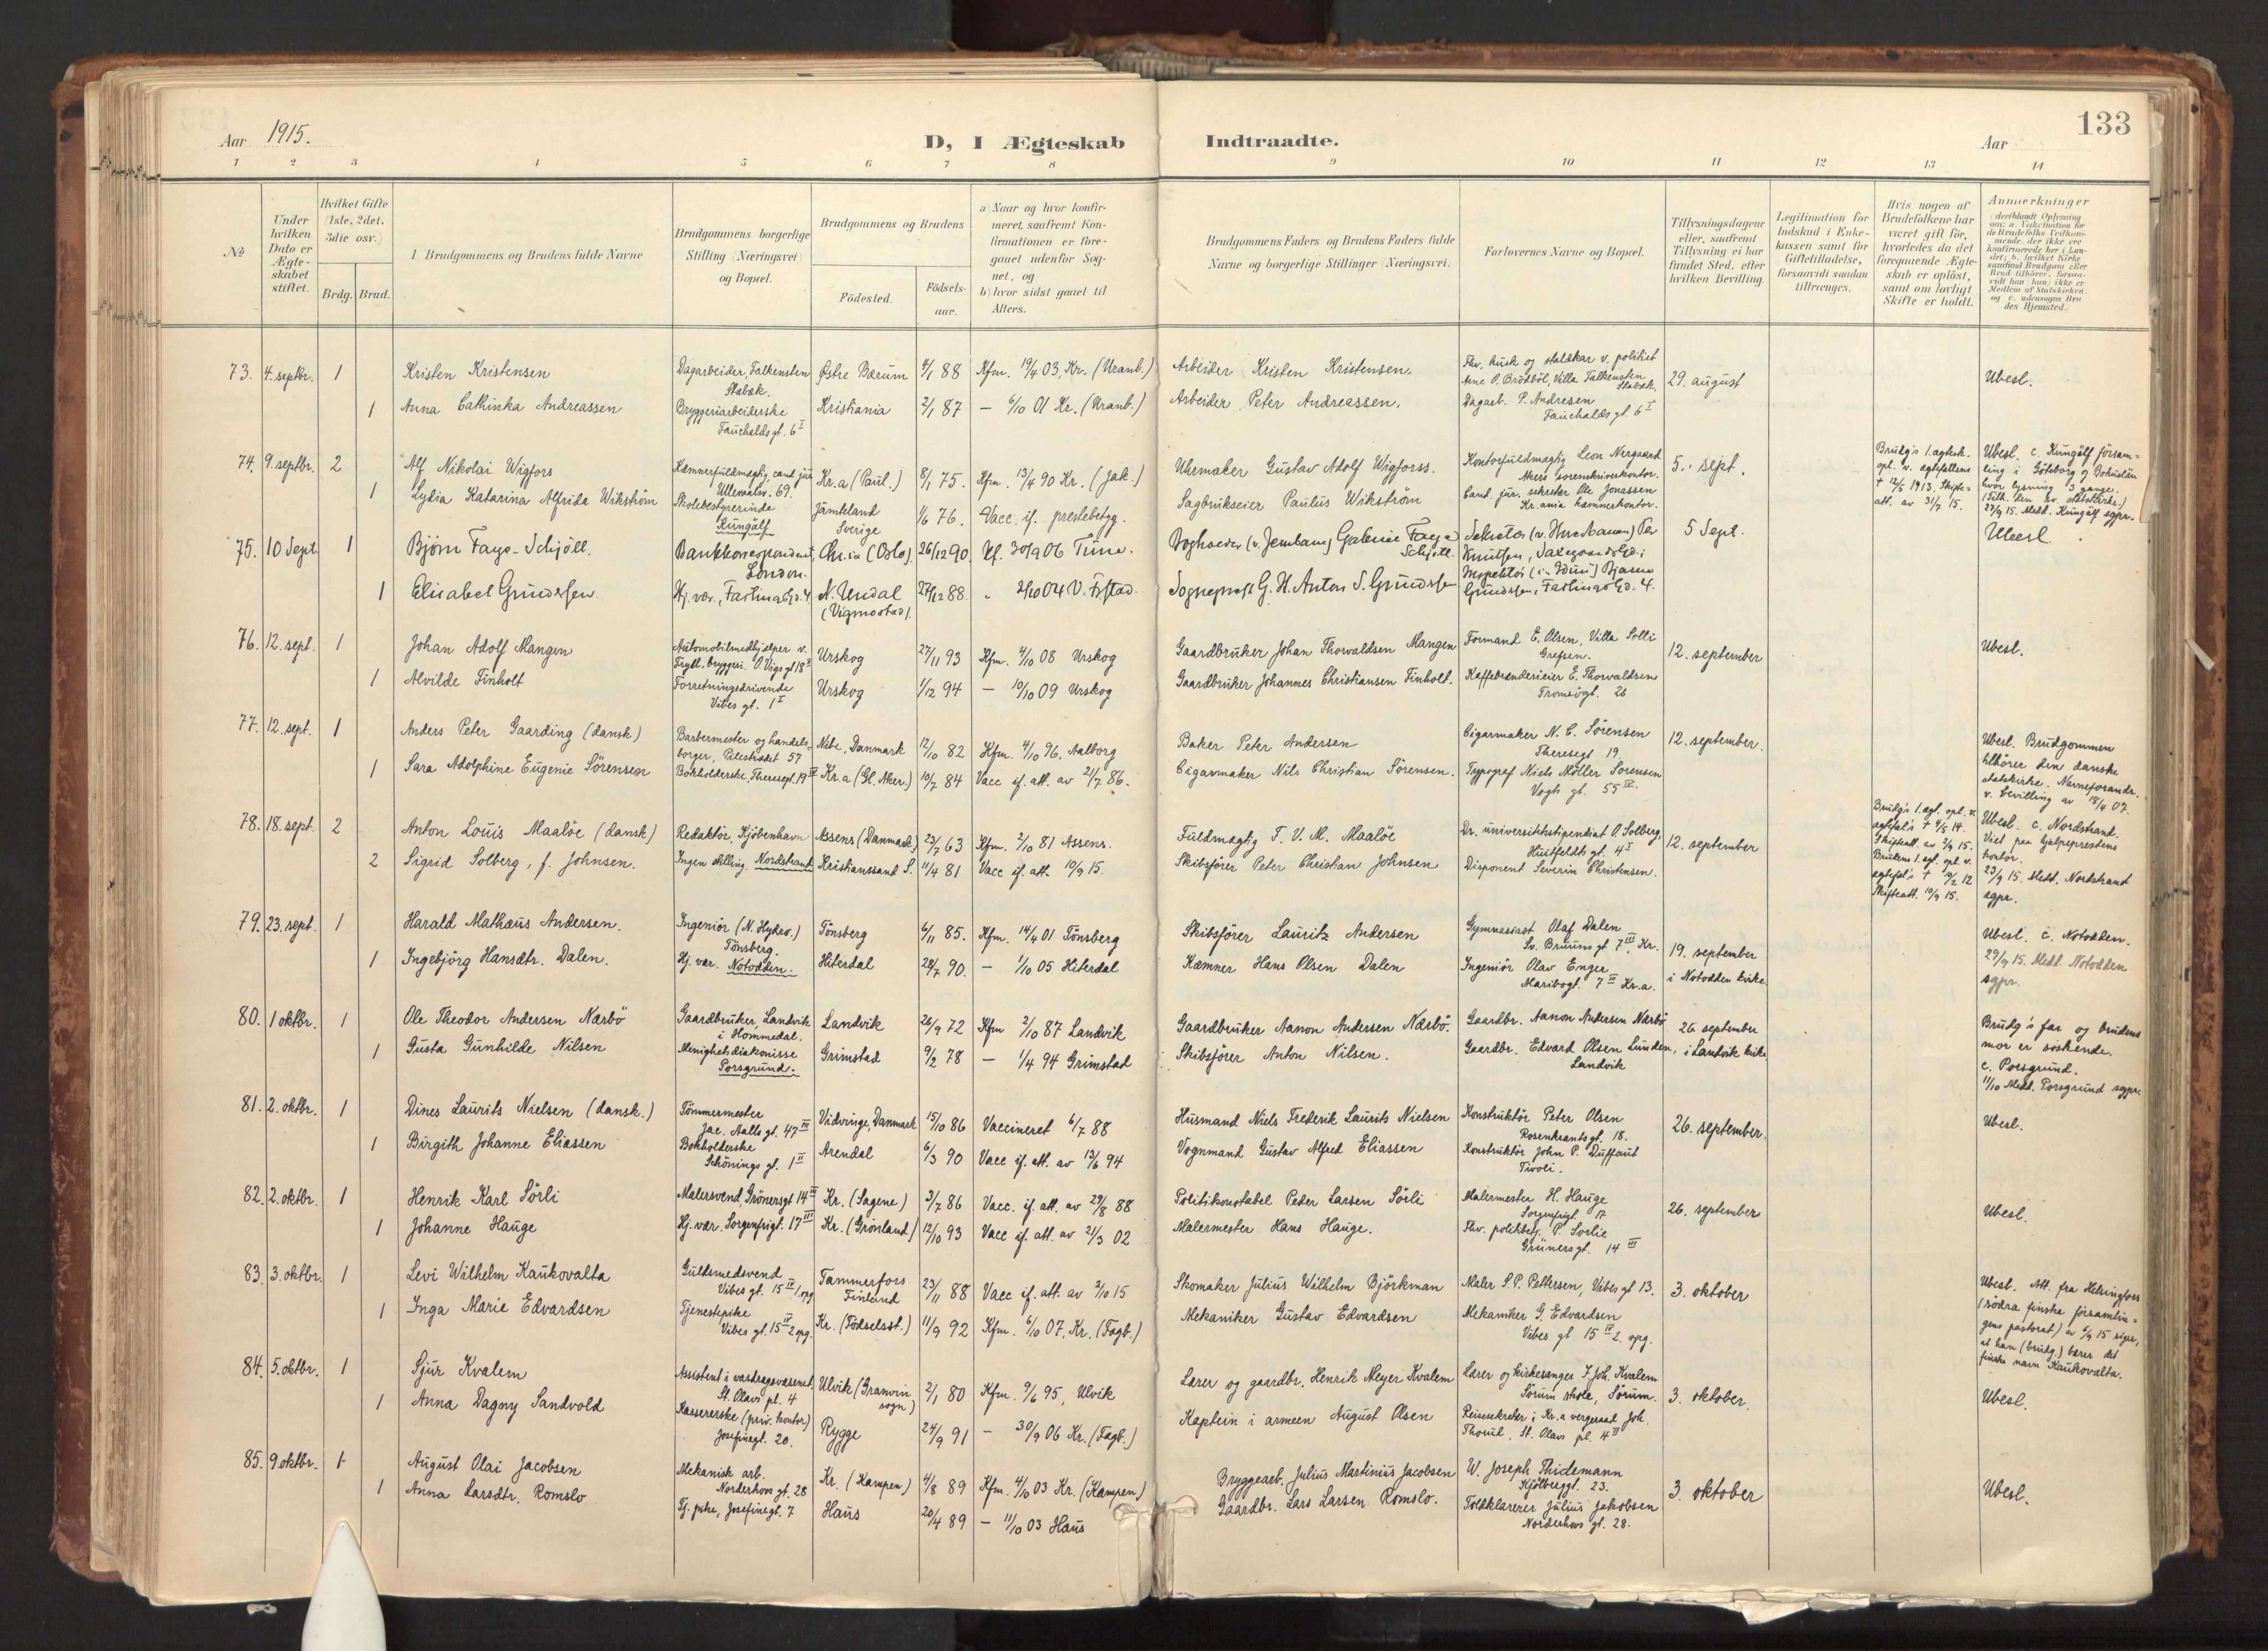 133
Aar 1915.
D, I Ægteskab Indtraadte.
Aar
1 2 3 4 5 6 7 8 9 10 11 12 13 14
No
Under hvilken Dato er Ægteskabet stiftet.
Hvilket Gifte (1ste, 2det, 3die osv.)
Brdg. Brud.
Brudgommens og Brudens fulde Navne
Brudgommens borgerlige Stilling (Næringsvei) og Bopæl.
Brudgommens og Brudens
Födested.
Födsels-aar.
a) Naar og hvor konfirmeret, saafremt Konfirmationen er foregaaet udenfor Sognet, og
b) hvor sidst gaaet til Alters.
Brudgommens Faders og Brudens Faders fulde Navne og borgerlige Stillinger (Næringsvei).
Forlovernes Navne og Bopæl.
Tillysningsdagene eller, saafremt Tillysning ei har fundet Sted, efter hvilken Bevilling.
Legitimation for Indskud i Enkekassen samt for Giftetilladelse, forsaavidt saadan tiltrænges.
Hvis nogen af Brudefolkene har været gift för, hvorledes da det foregaaende Ægteskab er oplöst, samt om lovligt Skifte er holdt.
Anmærkninger
(deriblandt Oplysning om: a. Vakcination for de Brudefolks Vedkommende, der ikke ere konfirmerede her i Landet; b. hvilket Kirkesamfund Brudgom eller Brud tilhörer, forsaavidt han (hun) ikke er Medlem af Statskirken, og c. udensogns Brudes Hjemsted.)
73. 4. septbr. 1 Kristen Kristensen Dagarbeider, Falkensten Stabæk. Østre Bærum 4/1 88 Kfm. 19/4 03, Kr. (Uranb.) Arbeider Kristen Kristensen. Fhv. kusk og staldkar v. politiet Arne O. Brödböl, Villa Falkensten Stabæk. 29. august Ubesl.
1 Anna Cathinka Andreassen Bryggeriarbeiderske Fauchalds gt. 6 I Kristiania 2/1 87 — 6/10 01 Kr. (Uranb.) Arbeider Peter Andreassen. Dagarb. P. Andresen Fauchalds gt. 6 I
74. 9. septbr. 2 Alf Nikolai Wigfors Kæmnerfuldmægtig, cand. jur. Ullevaalsv. 69. Kr.a (Paul.) 8/1 75. Kfm. 13/4 90 Kr. (Jak.) Uhrmaker Gustav Adolf Wigforss. Kontorfuldmægtig Leon Nergaard Akers sorenskriverkontor. 5. sept. Brudg's 1. ægtesk. opl. v. ægtefællens † 12/5 1913. Skifteatt. av 31/7 15. Ubesl. c. Kungälf församling i Göteborg og Bohuslän hvor lysning 3 gange. (Tilh. den sv. statskirke.) 27/9 15. Medd. Kungälf sgpr.
1 Lydia Katarina Alfrida Wikström Skolebestyrerinde Kungälf Jämtland Sverige 1/6 76. Vacc. if. prestebetyg. Sagbrukseier Paulus Wikström Cand. jur. sekretær Ole Jonassen Kr.ania kæmnerkontor.
75. 10 Sept. 1 Bjørn Faye-Schjöll. Bankkorrespondent, London. Chr.ia (Oslo). 26/12 90. Kf. 30/9 06 Tune. Bogholder (v. Jernbanen) Gabriel Faye Schjöll. Sekretær (v. Hovedbanen) Per Knutsen, 5 Sept. Ubesl.
1 Elisabet Gundersen. Hj. vær., N. Undal (Vigmostad). 27/12 88. „ 2/10 04 V. Fristad. Sogneprest G. H. Anton S. Gundersen Inspektör (i „Idun") Bjarne Gundersen,
76. 12. sept. 1 Johan Adolf Mangen Automobilmedhjælper v. Frydl. bryggeri. O. Vigs gt. 18 II Urskog 27/11 93 Kfm. 4/10 08 Urskog Gaardbruker Johan Thorvaldsen Mangen Formand E. Olsen, Villa Solli Grefsen. 12. september Ubesl.
1 Alvilde Finholt Forretningsdrivende Vibes gt. 1 I Urskog 1/12 94 — 10/10 09 Urskog Gaardbruker Johannes Christiansen Finholt. Kaffebrænderieier E. Thorvaldsen Tromsögt. 26
77. 12. sept. 1 Anders Peter Gaarding (dansk) Barbermester og handelsborger, Pilestrædet 57 Nibe, Danmark 12/10 82 Kfm. 4/10 96, Aalborg Baker Peter Andersen Cigarmaker N. C. Sörensen Theresegt 19. 12. september. Ubesl. Brudgommen tilhörer den danske statskirke. Navneforandr. v. bevilling av 18/4 07.
1 Sara Adolphine Eugenie Sörensen Bokholderske, Theresegt. 19 IV Kr.a (Gl. Aker.) 10/7 84 Vacc if. att. av 21/7 86. Cigarmaker Nils Christian Sörensen. Typograf Niels Möller Sorensen Vogts gt. 55 IV.
78. 18. sept. 2 Anton Louis Maalöe (dansk) Redaktör, Kjöbenhavn Assens (Danmark) 23/7 63 Kfm. 2/10 81 Assens. Fuldmægtig T. V. M. Maalöe Dr. universitetsstipendiat O. Solberg, Huitfeldts gt. 4 I 12. september Brudg's 1. ægt. opl. v. ægtefæl's † 4/5 14. Skifteatt. av 2/9 15. Brudens 1. ægt. opl. v. ægtefæl's † 10/2 12 Skifteatt. 10/9 15. Ubesl. c. Nordstrand. Viet paa hjælpeprestens kontor. 23/9 15. Medd. Nordstrand sgpr.
2 Sigrid Solberg, f. Johnsen. Ingen stilling. Nordstrand Kristianssand S. 11/4 81 Vacc if. att. 10/9 15. Skibsförer Peter Christian Johnsen Disponent Severin Christensen.
79. 23. sept. 1 Harald Mathæus Andersen. Ingeniör (N. Hydro.) Tönsberg. Tönsberg 6/11 85. Kfm. 14/4 01 Tönsberg Skibsförer Lauritz Andersen Gymnasiast Olaf Dalen Sv. Bruuns gt 7 III, Kr. 19. september i Notodden kirke. Ubesl. c. Notodden. 27/9 15. Medd. Notodden sgpr.
1 Ingebjörg Hansdtr. Dalen. Hj. vær. Notodden. Hiterdal 28/7 90. — 1/10 05 Hiterdal Kæmner Hans Olsen Dalen Ingeniör Olav Enger Maribogt. 7 III Kr.a.
80. 1 oktbr. 1 Ole Theodor Andersen Nærbö Gaardbruker, Landvik i Hommedal. Landvik 26/9 72 Kfm 2/10 87 Landvik Gaardbruker Aanon Andersen Nærbö. Gaardbr. Aanon Andersen Nærbö 26 september i Landvik kirke Brudg's far og brudens mor er söskende. c. Porsgrund. 11/10 Medd. Porsgrund sgpr.
1 Gusta Gunhilde Nilsen Menighetsdiakonisse Porsgrund. Grimstad 9/2 78 — 1/4 94 Grimstad Skibsförer Anton Nilsen. Gaardbr. Edvard Olsen Lunden, Landvik
81. 2. oktbr. 1 Dines Laurits Nielsen (dansk.) Tömmermester Jac. Aalls gt. 47 III Vidvinge, Danmark 15/10 86 Vaccineret 6/7 88 Husmand Niels Frederik Laurits Nielsen Konstruktör Peter Olsen Rosenkrantsgt. 18. 26. september. Ubesl.
1 Birgith Johanne Eliassen Bokholderske Schönings gt. 1 II Arendal 6/3 90 Vacc if. att. av 13/6 94 Vognmand Gustav Alfred Eliassen Konstruktör John P. Duffaut Tivoli.
82. 2. oktbr. 1 Henrik Karl Sörli Malersvend, Grönersgt 14 III Kr. (Sagene) 3/7 86 Vacc. if. att. av 29/8 88 Politikonstabel Peder Larsen Sörli Malermester H. Hauge Sorgenfrigt. 17 26. september Ubesl.
1 Johanne Hauge Hj. vær. Sorgenfrigt. 17 III Kr. (Grönland) 12/10 93 Vacc if. att. av 21/3 02 Malermester Hans Hauge. Fhv. politibetj. P. Sorlie Grüners gt. 14 III
83. 3. oktbr. 1 Levi Wilhelm Kaukovalta Guldsmedsvend Vibes gt. 15 IV 1. opg Tammerfors Finland 23/11 88 Vacc if. att. av 2/10 15 Skomaker Julius Wilhelm Björkman Maler S. P. Pettersen, Vibes gt 13. 3. oktober Ubesl. Att. fra Helsingfors (södra finska församlingens pastorat) av 6/9 15 siger, at han (brudg.) bærer det finske navn Kaukovalta.
1 Inga Marie Edvardsen Tjenestepike Vibes gt. 15 IV 2 opg. Kr. (Födselsst.) 11/9 92 Kfm. 6/10 07, Kr. (Fagb.) Mekaniker Gustav Edvardsen Mekaniker G. Edvardsen Vibes gt 15 IV 2. opg.
84. 5. oktbr. 1 Sjur Kvalem Assistent i vasdragsvæsenet, St. Olavs pl. 4 Ulvik (Granvin sogn) 2/1 80 Kfm. 9/6 95, Ulvik Lærer og gaardbr. Henrik Meyer Kvalem Lærer og kirkesanger S. Joh. Kvalem Sörum skole, Sörum. 3. oktober. Ubesl.
1 Anna Dagny Sandvold Kassererske (priv. kontor) Josefinegt. 20. Rygge 24/9 91 — 30/9 06 Kr. (Fagb.) Kaptein i armeen August Olsen Reisesekretær i Kr.a vergeraad Joh. Thorud, St. Olavs pl. 4 II
85. 9 oktbr. 1 August Olai Jacobsen Mekanisk arb. Norderhovs gt. 28 Kr. (Kampen) 4/8 89 Kfm. 4/10 03 Kr. (Kampen) Bryggearb. Julius Martinius Jacobsen W. Joseph Thidemann Kjölberggt. 23. 3. oktober Ubesl.
1 Anna Larsdtr. Romslo Tj. pike, Josefinegt. 7 Haus 20/4 89 — 11/10 03 Haus Gaardbr. Lars Larsen Romslo. Toldklarerer Julius Jakobsen Norderhovs gt. 28.